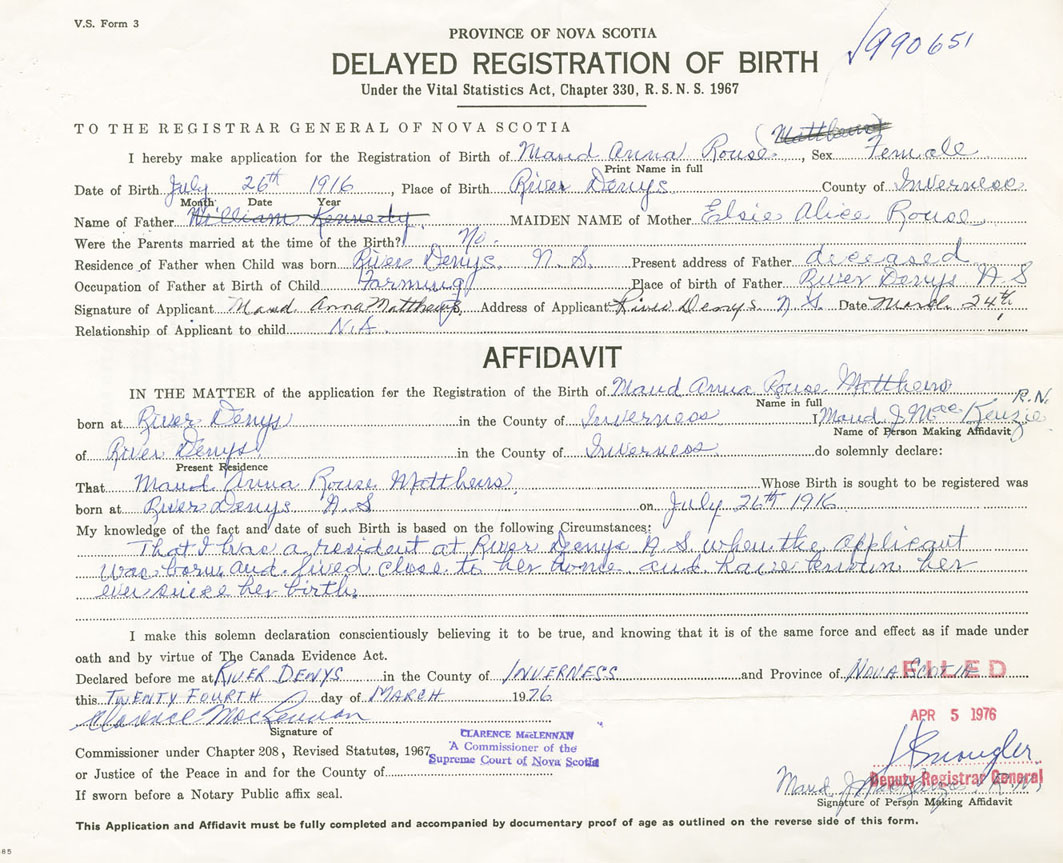 V.S. Form 3
PROVINCE OF NOVA SCOTIA
990651
DELAYED REGISTRATION OF BIRTH
Under the Vital Statistics Act, Chapter 330, R. S. N. S. 1967
TO THE REGISTRAR GENERAL OF NOVA SCOTIA
(Matthews)
I hereby make application for the Registration of Birth of Maud Anna Rouse, Sex Female
Print Name in full
Date of Birth July 26th 1916, Place of Birth River Denys County of Inverness
Month Date Year
Name of Father William Kennedy MAIDEN NAME of Mother Elsie Alice Rouse
Were the Parents married at the time of the Birth? No.
Residence of Father when Child was born River Denys, N. S. Present address of Father deceased
Occupation of Father at Birth of Child Farming Place of birth of Father River Denys N S
Signature of Applicant Maud Anna Matthews, Address of Applicant River Denys N. S. Date March 24th,
Relationship of Applicant to child N.A.
AFFIDAVIT
IN THE MATTER of the application for the Registration of the Birth of Maud Anna Rouse Matthews
Name in full R.N.
born at River Denys in the County of Inverness I Maud J. MacKenzie
Name of Person Making Affidavit
of River Denys, in the County of Inverness do solemnly declare:
Present Residence
That Maud Anna Rouse Matthews, Whose Birth is sought to be registered was
born at River Denys N S on July 26th 1916
My knowledge of the fact and date of such Birth is based on the following Circumstances:
That I was a resident at River Denys N S when the applicant
was born and lived close to her home and have known her
ever since her birth.
I make this solemn declaration conscientiously believing it to be true, and knowing that it is of the same force and effect as if made under
oath and by virtue of The Canada Evidence Act.
Declared before me at RIVER DENYS in the County of INVERNESS and Province of NOVA SCOTIA
FILED
this TWENTY FOURTH day of MARCH 1976
APR 5 1976
Clarence MacLennan
Signature of
CLARENCE MacLENNAN
Commissioner under Chapter 208, Revised Statutes, 1967
A Commissioner of the
Supreme Court of Nova Scotia
or Justice of the Peace in and for the County of
Deputy Registrar General
Maud J. MacKenzie R.N.
If sworn before a Notary Public affix seal.
Signature of Person Making Affidavit
This Application and Affidavit must be fully completed and accompanied by documentary proof of age as outlined on the reverse side of this form.
85